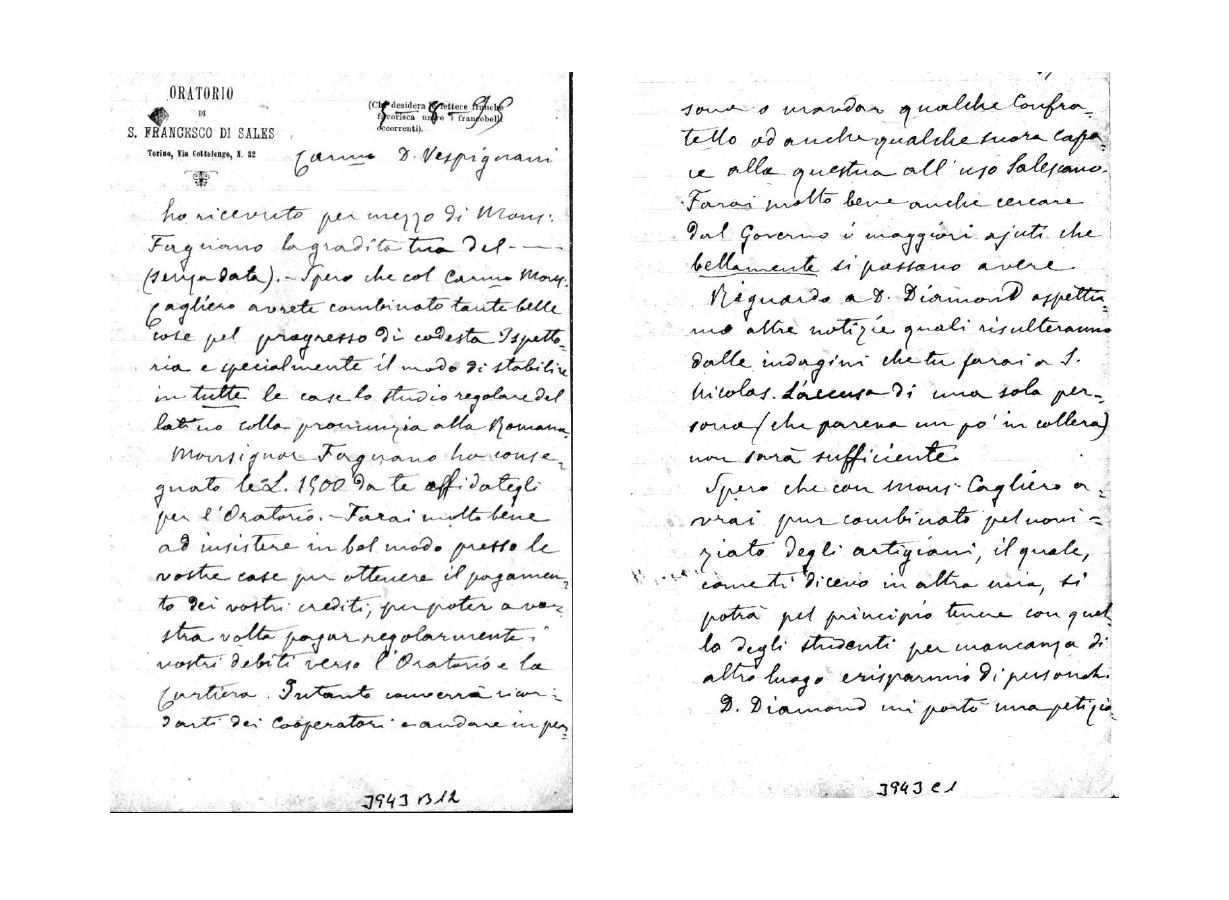 ORATORIO
DI
S. FRANCESCO DI SALES
Torino, Via Cottolengo, N. 32
(Chi desidera le lettere franche
favorisca unire i francobolli
occorrenti).
Carmo D. Vespignani
ho ricevuto per mezzo di Mons.
Fagnano la gradita tua del - —
(senza data). - Spero che col Carmo Mons.
Cagliero avrete combinato tante belle
cose pel progresso di codesta Ispetto=
ria e specialmente il modo di stabilire
in tutte le case lo studio regolare del
latino colla pronunzia alla Romana.
Monsignor Fagnano ha conse=
gnato le L. 1500 da te affidategli
per l'Oratorio. - Farai molto bene
ad insistere in bel modo presso le
vostre case per ottenere il pagamen=
to dei vostri crediti, per poter a vo=
stra volta pagar regolarmente i
vostri debiti verso l'Oratorio e la
Cartiera. Intanto converrà ricor=
darti dei Cooperatori e andare in per=
3943 B12
sona o mandar qualche Confra=
tello od anche qualche suora capa=
ce alla questua all'uso Salesiano.
Farai molto bene anche cercare
dal Governo i maggiori ajuti che
bellamente si possano avere
Riguardo a D. Diamond aspettia=
mo altre notizie quali risulteranno
dalle indagini che tu farai a S.
Nicolas. L'accusa di una sola per=
sona (che pareva un po' in collera)
non sarà sufficiente.
Spero che con Mons. Cagliero a=
vrai pur combinato pel novi=
ziato degli artigiani, il quale,
come ti dicevo in altra mia, si
potrà pel principio tenere con quel
lo degli studenti per mancanza di
altro luogo e risparmio di personale.
D. Diamond mi portò una petizio=
3943 C1